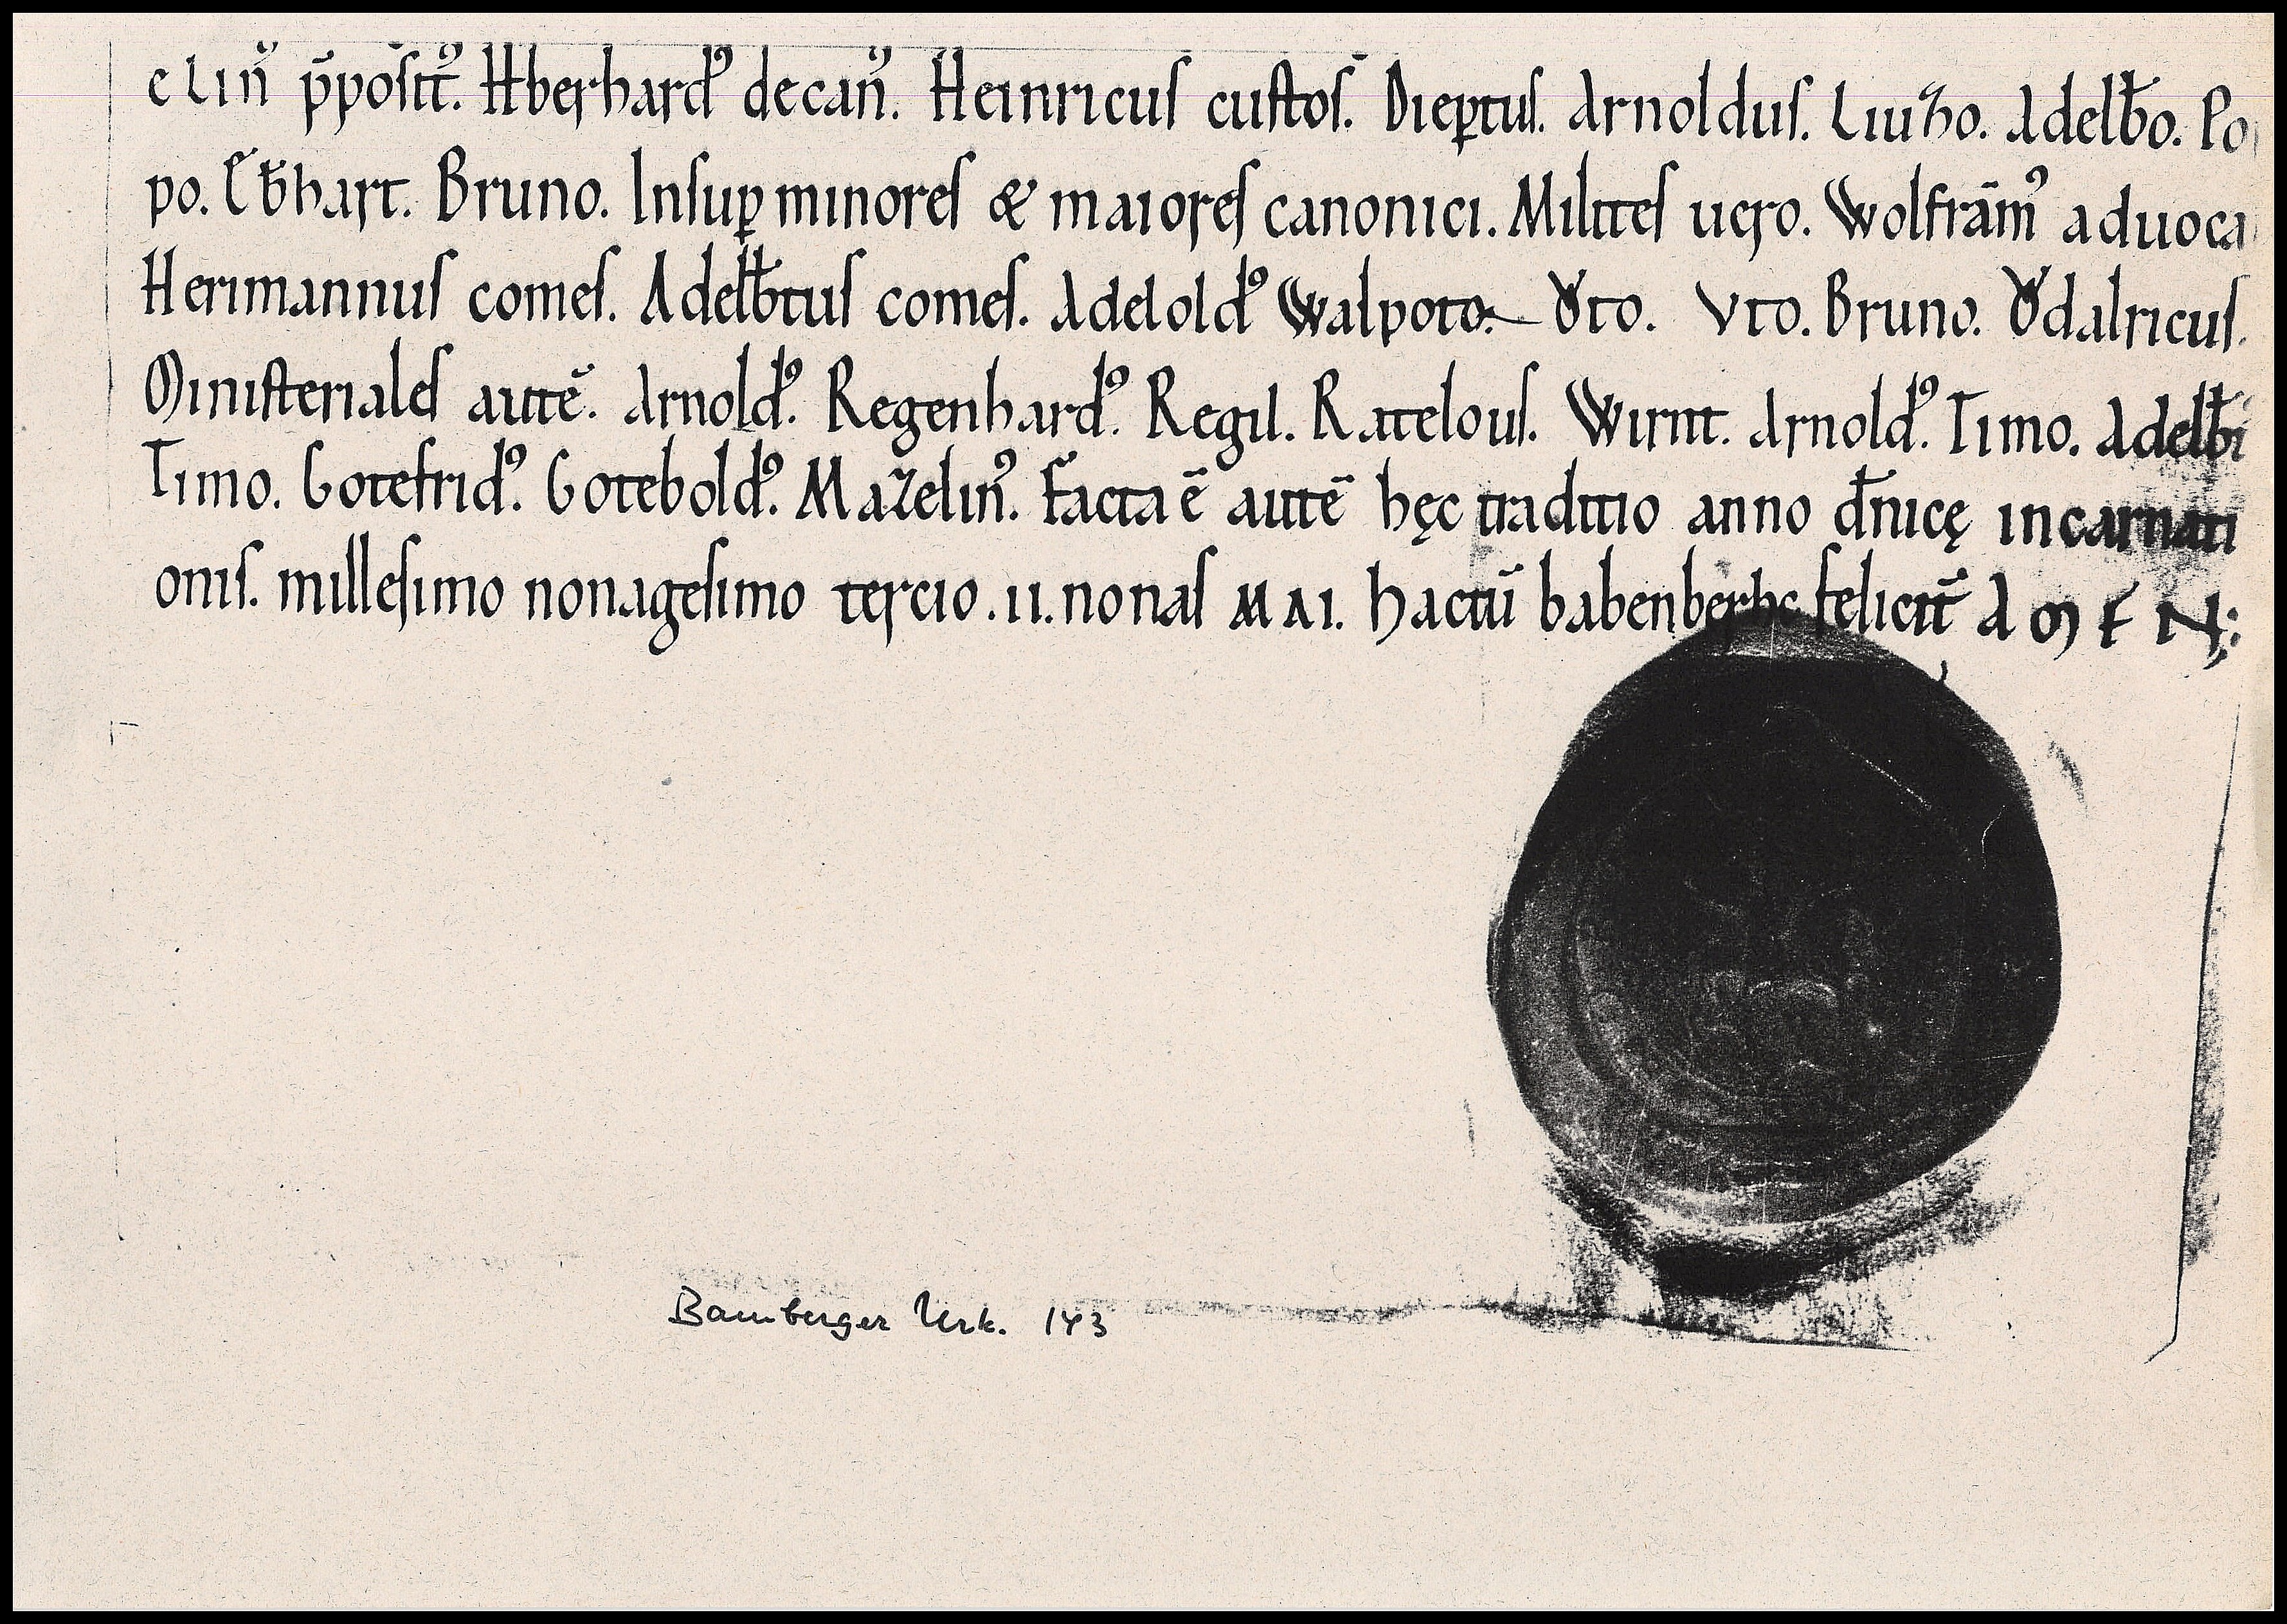 elin᷒ p̄posit᷒. Hberhard᷒ decan᷒. Heinricus custos. Diep̱tus. Arnoldus. Liuzo. Adelƀo. Po
po. Eƀhart. Bruno. Insuꝑ minores & maiores canonici. Milites uero. Wolfrām᷒ aduoca
Herimannus comes. Adelƀtus comes. Adelold᷒ Walpoto. Ǒto. Vto. Bruno. Ǒdalricus.
Ministeriales autē. Arnold᷒. Regenhard᷒. Regil. Ratelous. Wirnt. Arnold᷒. Timo. Adelƀ
Timo. Gotefrid᷒. Gotebold᷒. Mazelin᷒. Facta ē autē hęc traditio anno dn̄icę incarnati
onis. millesimo nonagesimo tercio .II. nonas MAI. hactū babenberhc felicit̄ AMEN;
Bamberger Urk. 143